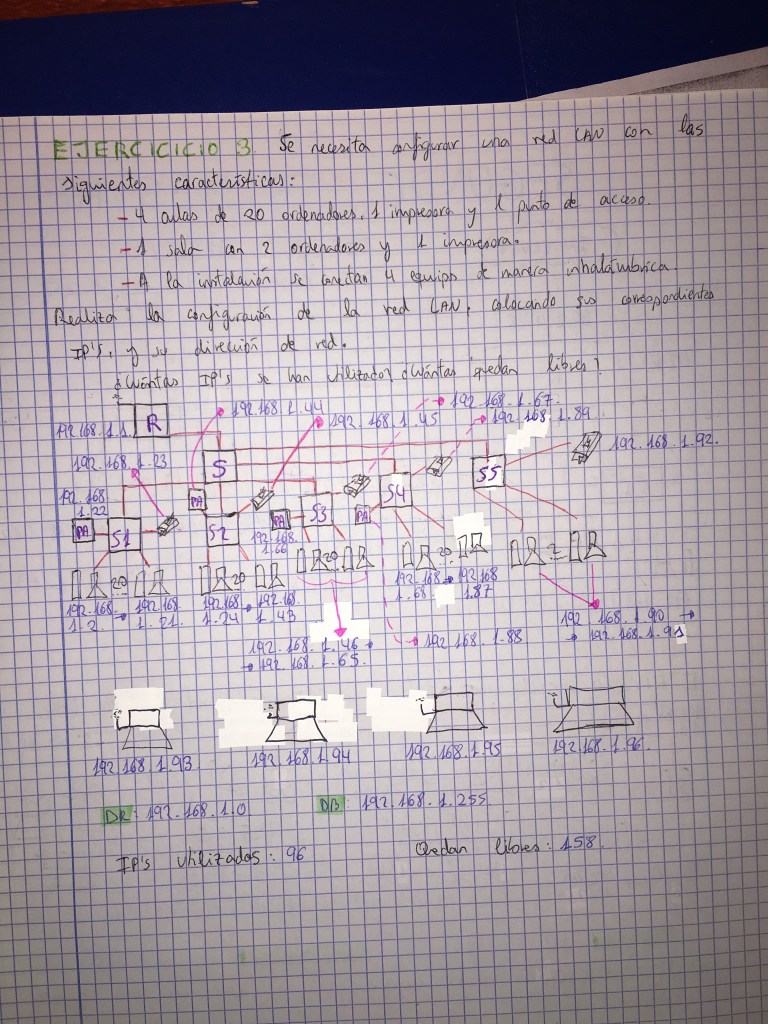 EJERCICICIO 3. Se necesita configurar una red LAN con las
siguientes características:
- 4 aulas de 20 ordenadores, 1 impresora y 1 punto de acceso.
- 1 sala con 2 ordenadores y 1 impresora.
- A la instalación se conectan 4 equipos de manera inhalámbrica.
Realiza la configuración de la red LAN, colocando sus correspondientes
IP's, y su dirección de red.
¿Cuántas IP's se han utilizado? ¿Cuántas quedan libres?
192.168.1.67
192.168.1.44
192.168.1.45
192.168.1.89
192.168.1.1
R
192.168.1.92.
192.168.1.23
S
S5
192.168
1.22
PA
S4
PA
S1
S2
PA
S3
PA
192.168.
1.66
20
20
20
20
2
192.168.
1.2 →
192.168
1.21.
192.168
1.24 →
192.168.
1.43
192.168 →
1.68
192.168
1.87
192.168.1.46 →
→ 192.168.1.65.
192.168.1.88
192.168.1.90 →
→ 192.168.1.91
192.168.1.93
192.168.1.94
192.168.1.95
192.168.1.96.
DR: 192.168.1.0
DB: 192.168.1.255.
IP's utilizadas: 96
Quedan libres: 158.